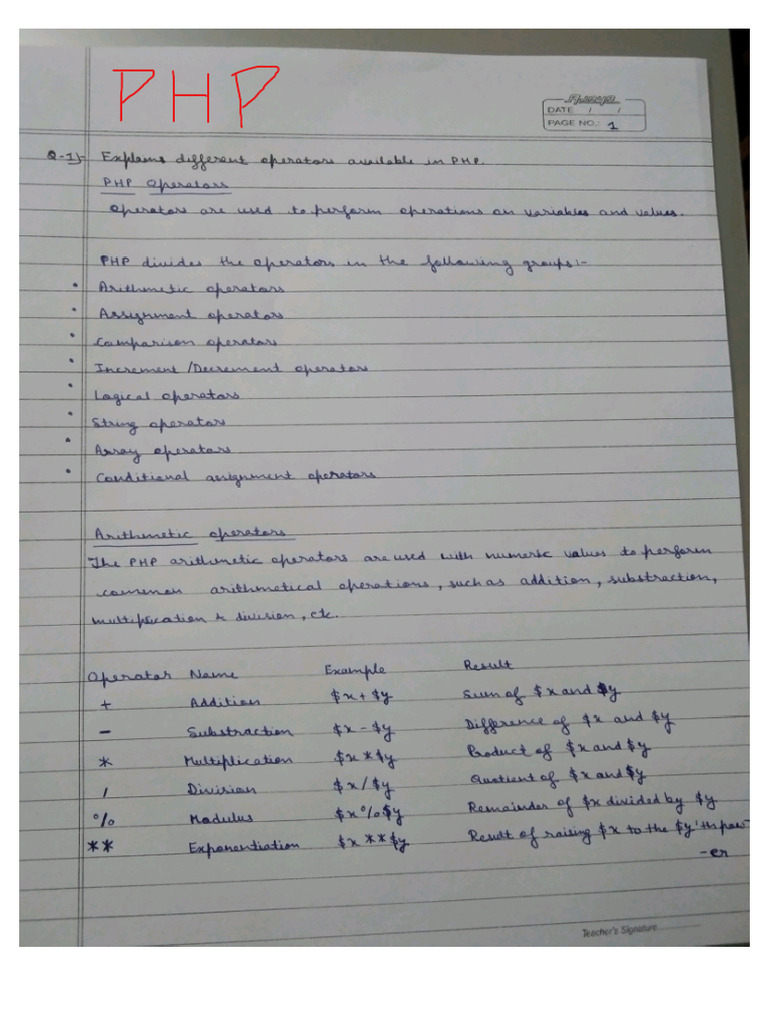 PHP
Apsara
DATE / /
PAGE NO.: 1
Q-1)- Explains different operators available in PHP.
PHP Operators
Operators are used to perform operations on variables and values.
PHP divides the operators in the following groups:-
• Arithmetic operators
• Assignment operators
• Comparison operators
• Increment/Decrement operators
• Logical operators
• String operators
• Array operators
• Conditional assignment operators
Arithmetic operators
The PHP arithmetic operators are used with numeric values to perform
common arithmetical operations, such as addition, substraction,
multiplication & division, etc.
Operator Name Example Result
+ Addition $x+$y Sum of $x and $y
- Substraction $x-$y Difference of $x and $y
* Multiplication $x*$y Product of $x and $y
/ Division $x/$y Quotient of $x and $y
% Modulus $x%$y Remainder of $x divided by $y
** Exponentiation $x**$y Result of raising $x to the $y'th pow-
-er
Teacher's Signature